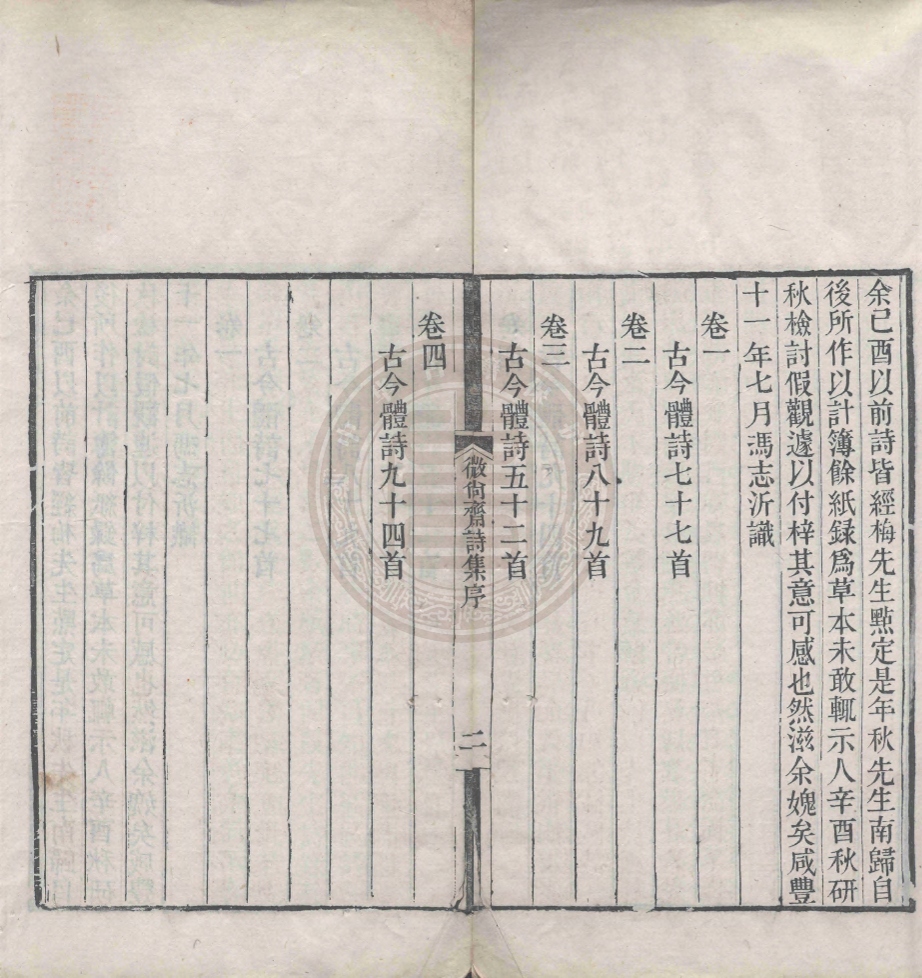 余己酉以前詩皆經梅先生㸃定是年秋先生南歸自
後所作以計簿餘紙録爲草本未敢輒示人辛酉秋研
秋檢討假觀遽以付梓其意可感也然滋余媿矣咸豐
十一年七月馮志沂識
卷一
古今體詩七十七首
卷二
古今體詩八十九首
卷三
古今體詩五十二首
微尙齋詩集序
二
卷四
古今體詩九十四首